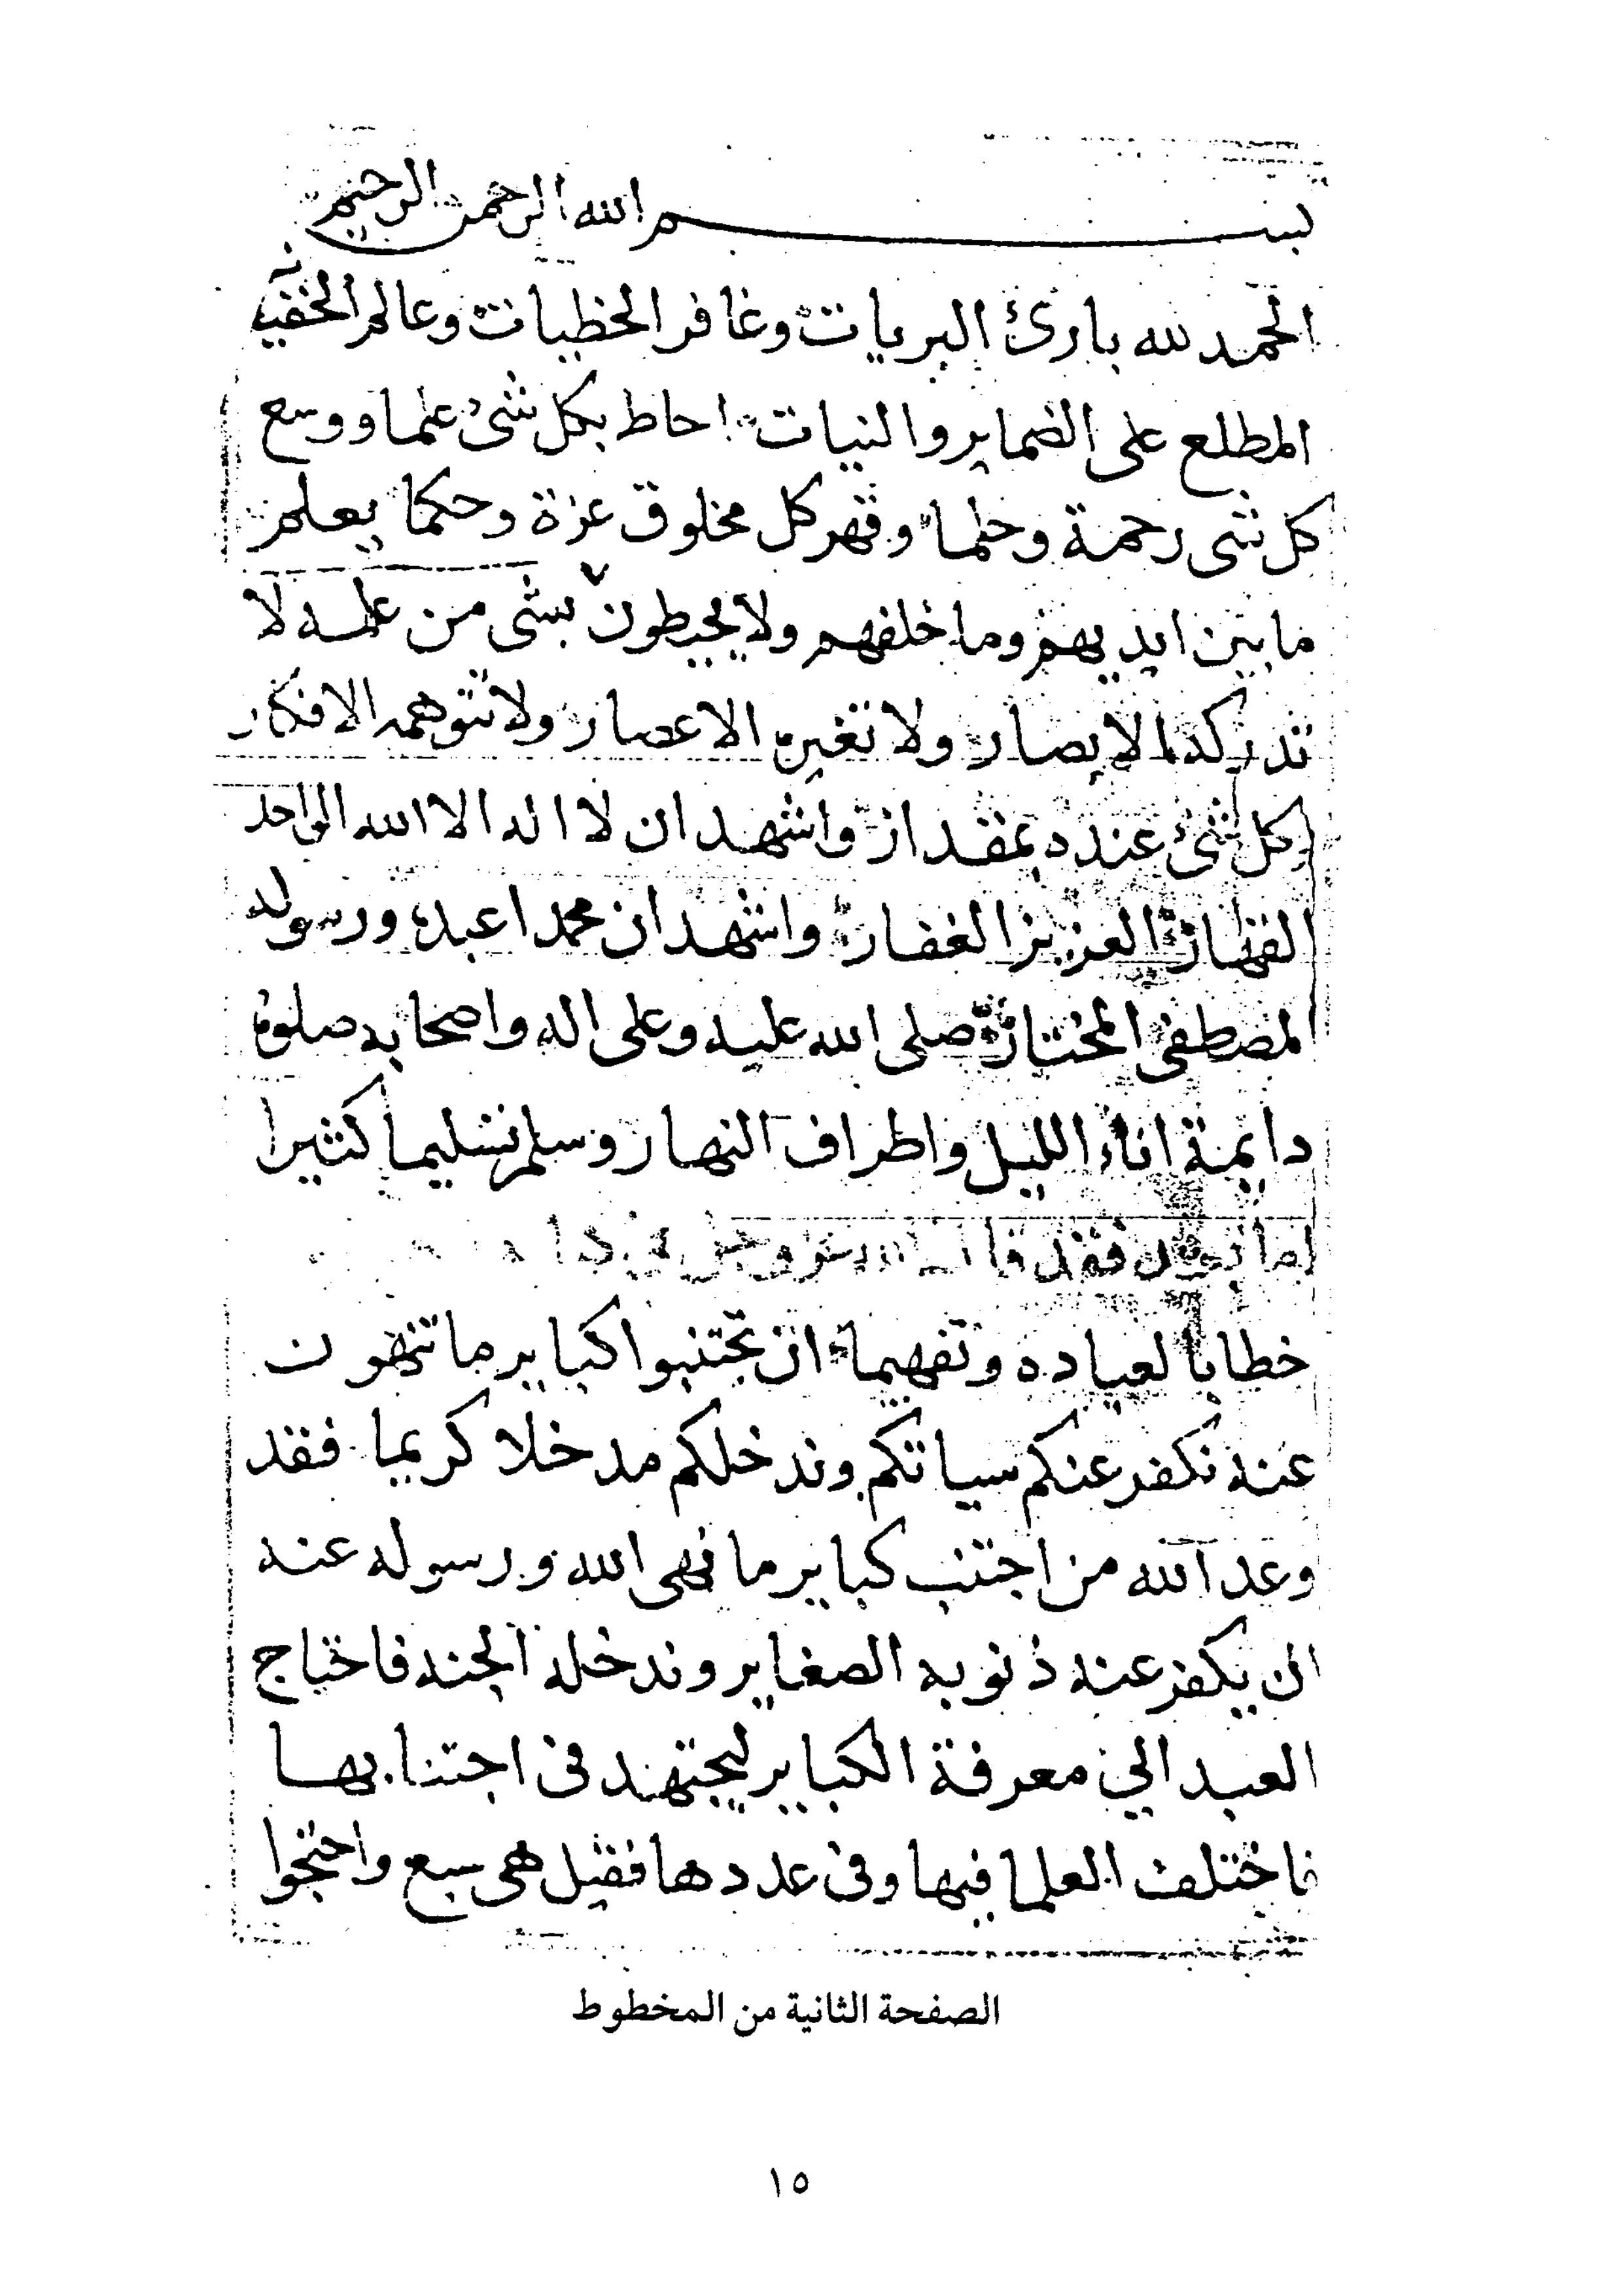 بسم الله الرحمن الرحيم
الحمد لله بارئ البريات وغافر الخطيات وعالم الخفيات
المطلع على الضماير والنيات احاط بكل شئ علما ووسع
كل شى رحمة وحلما وقهر كل مخلوق عزة وحكما يعلم
ما بين ايديهم وما خلفهم ولا يحيطون بشى من علمه لا
تدركه الابصار ولا تغيره الاعصار ولا تتوهمه الافكار
وكل شئ عنده بمقدار واشهد ان لا اله الا الله الواحد
القهار العزيز الغفار واشهد ان محمدا عبده ورسوله
المصطفى المختار صلى الله عليه وعلى اله واصحابه صلوة
دايمة اناء الليل واطراف النهار وسلم تسليما كثيرا
اما بعد فقد قال الله عز وجل في
خطابا لعباده وتفهيما ان تجتنبوا كباير ما تنهون
عنه نكفر عنكم سياتكم وندخلكم مدخلا كريما فقد
وعد الله من اجتنب كباير ما نهى الله ورسوله عنه
ان يكفر عنه ذنوبه الصغاير وندخله الجنه فاحتاج
العبد الي معرفة الكباير ليجتهد فى اجتنابها
فاختلف العلما فيها وفى عددها فقيل هى سبع واحتجوا
الصفحة الثانية من المخطوط
١٥